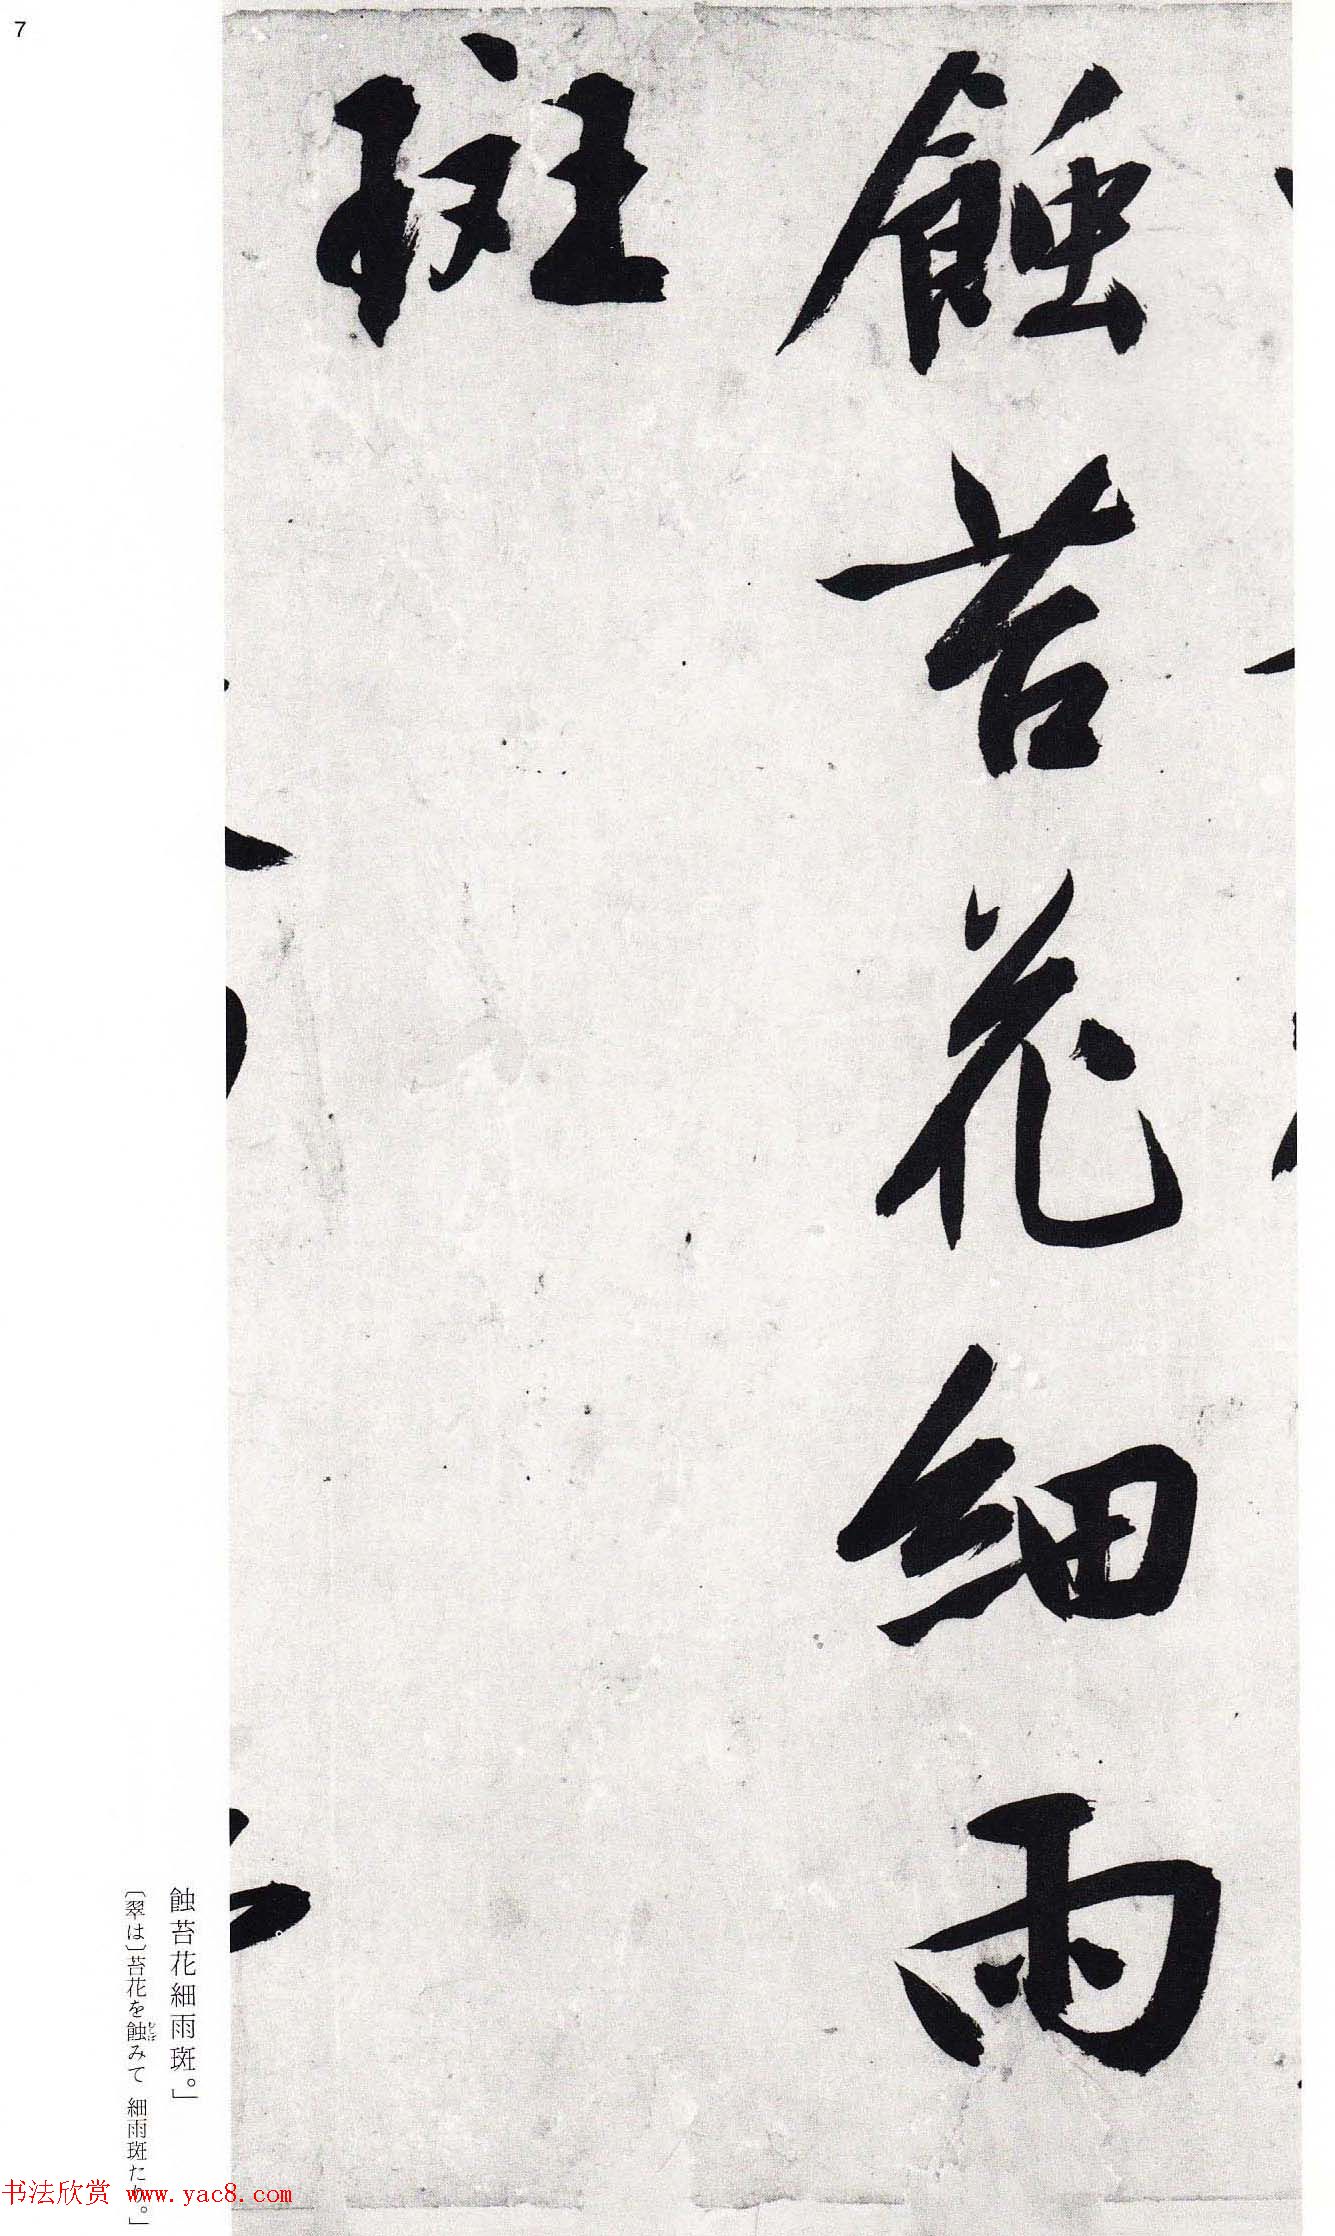 7
蝕苔花細雨
斑
蝕苔花細雨斑。」
〔翠は〕苔花を蝕みて 細雨斑たり。」
书法欣赏 www.yac8.com